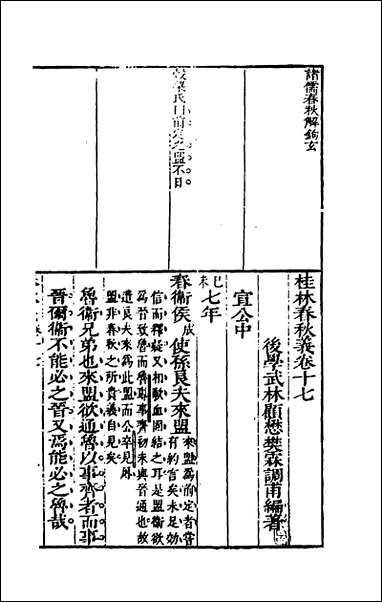 諸儒春秋解鉤玄
穀梁氏曰前定之盟不日
桂林春秋義卷十七
後學武林顧懋樊霖調甫編著
宣公中
己未七年
春衛侯成使孫良夫來盟
來盟為前定者嘗
有約言矣未足効
信而釋疑又相歃血固結之耳是盟衛欲
為晉致魯而魯專事齊初未與晉通也故
遣良夫來為此盟而公卒見外
盟非春秋之所貴義自見矣
魯衛兄弟也來盟欲通魯以事齊者而事
晉爾衛不能必之晉又焉能必之魯哉